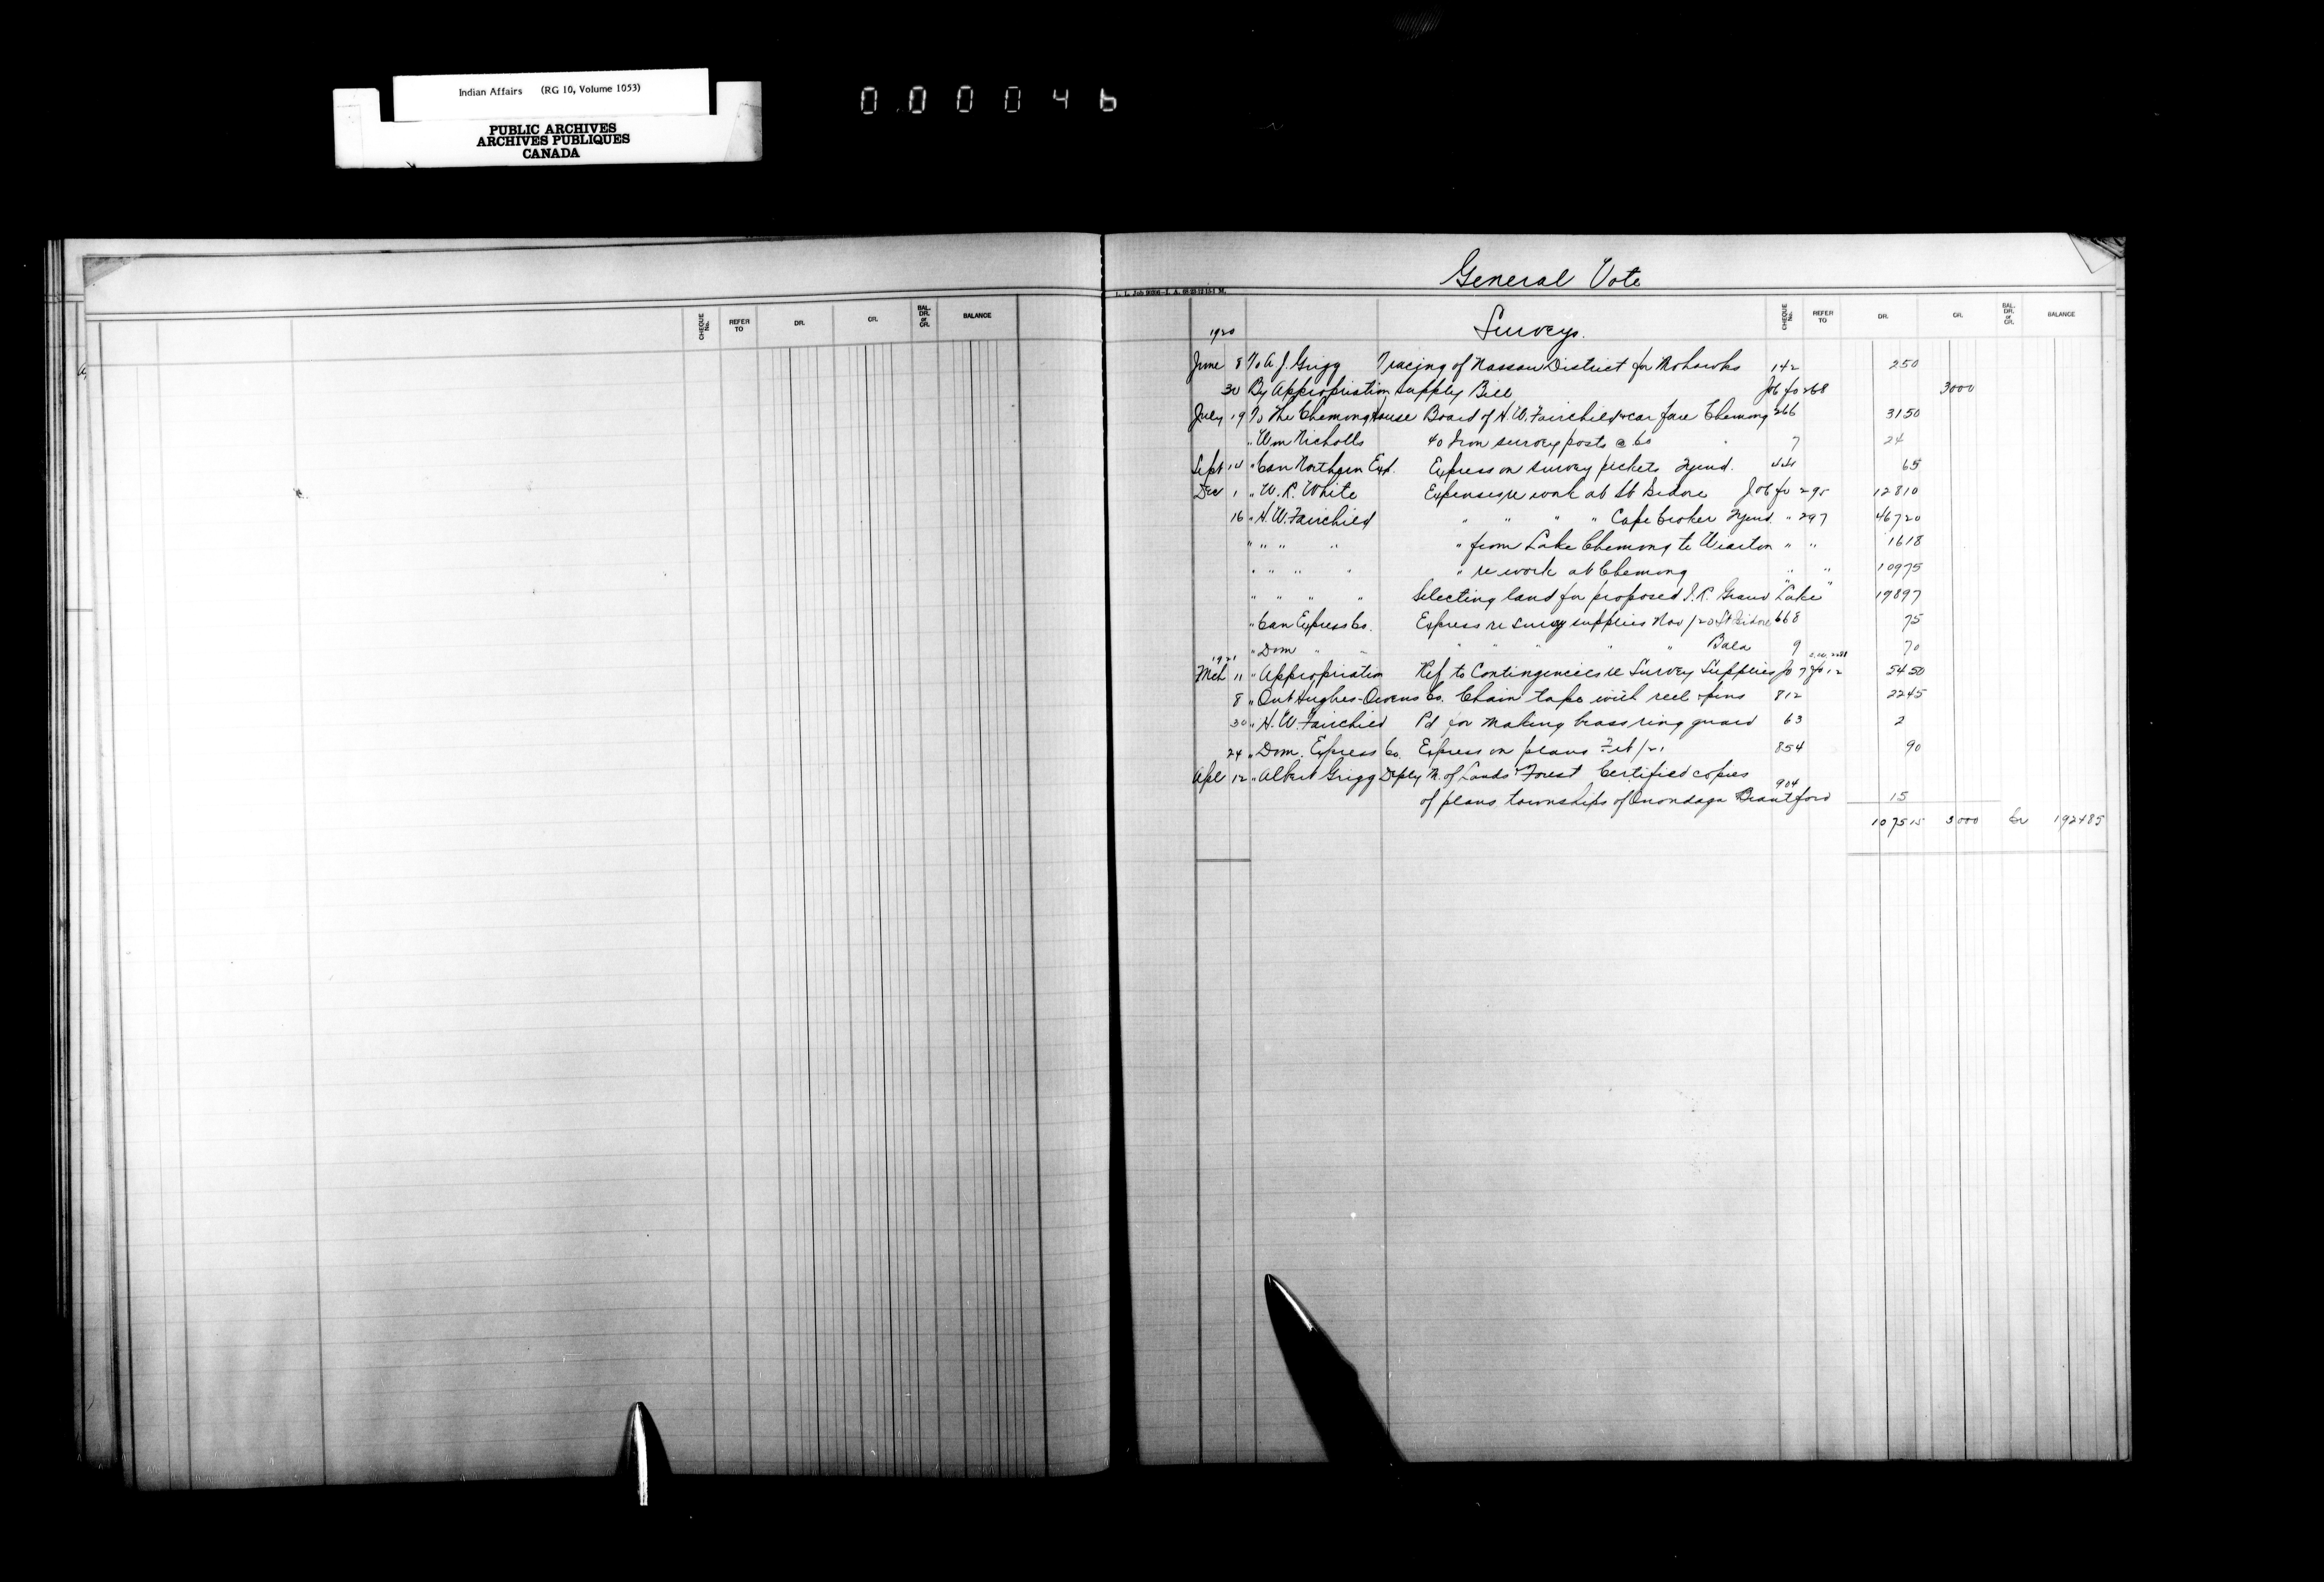 Indian Affairs (RG 10, Volume 1053)
PUBLIC ARCHIVES
ARCHIVES PUBLIQUES
CANADA
000046
General Vote
CHEQUE No. REFER TO DR. CR. BAL. DR. or CR. BALANCE
CHEQUE No. REFER TO DR. CR. BAL. DR. or CR. BALANCE
1920 Surveys.
June 8 To A. J. Grigg Tracing of Nassau District for Mohawks 142 2 50
30 By Appropriation Supply Bill Job fo 268 3000
July 19 To The Chemong House Board of H. W. Fairchild & car fare Chemong 266 31 50
" Wm Nicholls 40 Iron survey posts @ 60 " 7 24
Sept 14 " Can Northern Exp. Express on survey pickets Tyend. 65
Dec 1 " W. R. White Expenses re work at St Isidore Job fo 295 128 10
16 " H. W. Fairchild " " " " Cape Croker Tyend. " 297 467 20
" " " " " from Lake Chemong to Wiarton " " 16 18
" " " " " re work at Chemong " " 109 75
" " " " Selecting land for proposed I. R. Grand Lake " " 198 97
" Can Express Co. Express re survey supplies Nov/20 St Isidore 668 75
" Dom " " " " " " " Bala 9 70
1921
Mch 11 " Appropriation Ref to Contingencies re Survey Supplies fo 7 & fo 12 54 50
8 " Ont Hughes-Owens Co. Chain tape with reel & pins 812 22 45
30 " H. W. Fairchild Pd for making brass ring guard 63 2
24 " Dom. Express Co. Express on plans Feb/21 854 90
Apl 12 " Albert Grigg Deputy M. of Lands & Forest Certified copies
of plans townships of Onondaga & Brantford 904 15
1075 15 3000 Cr 1924 85